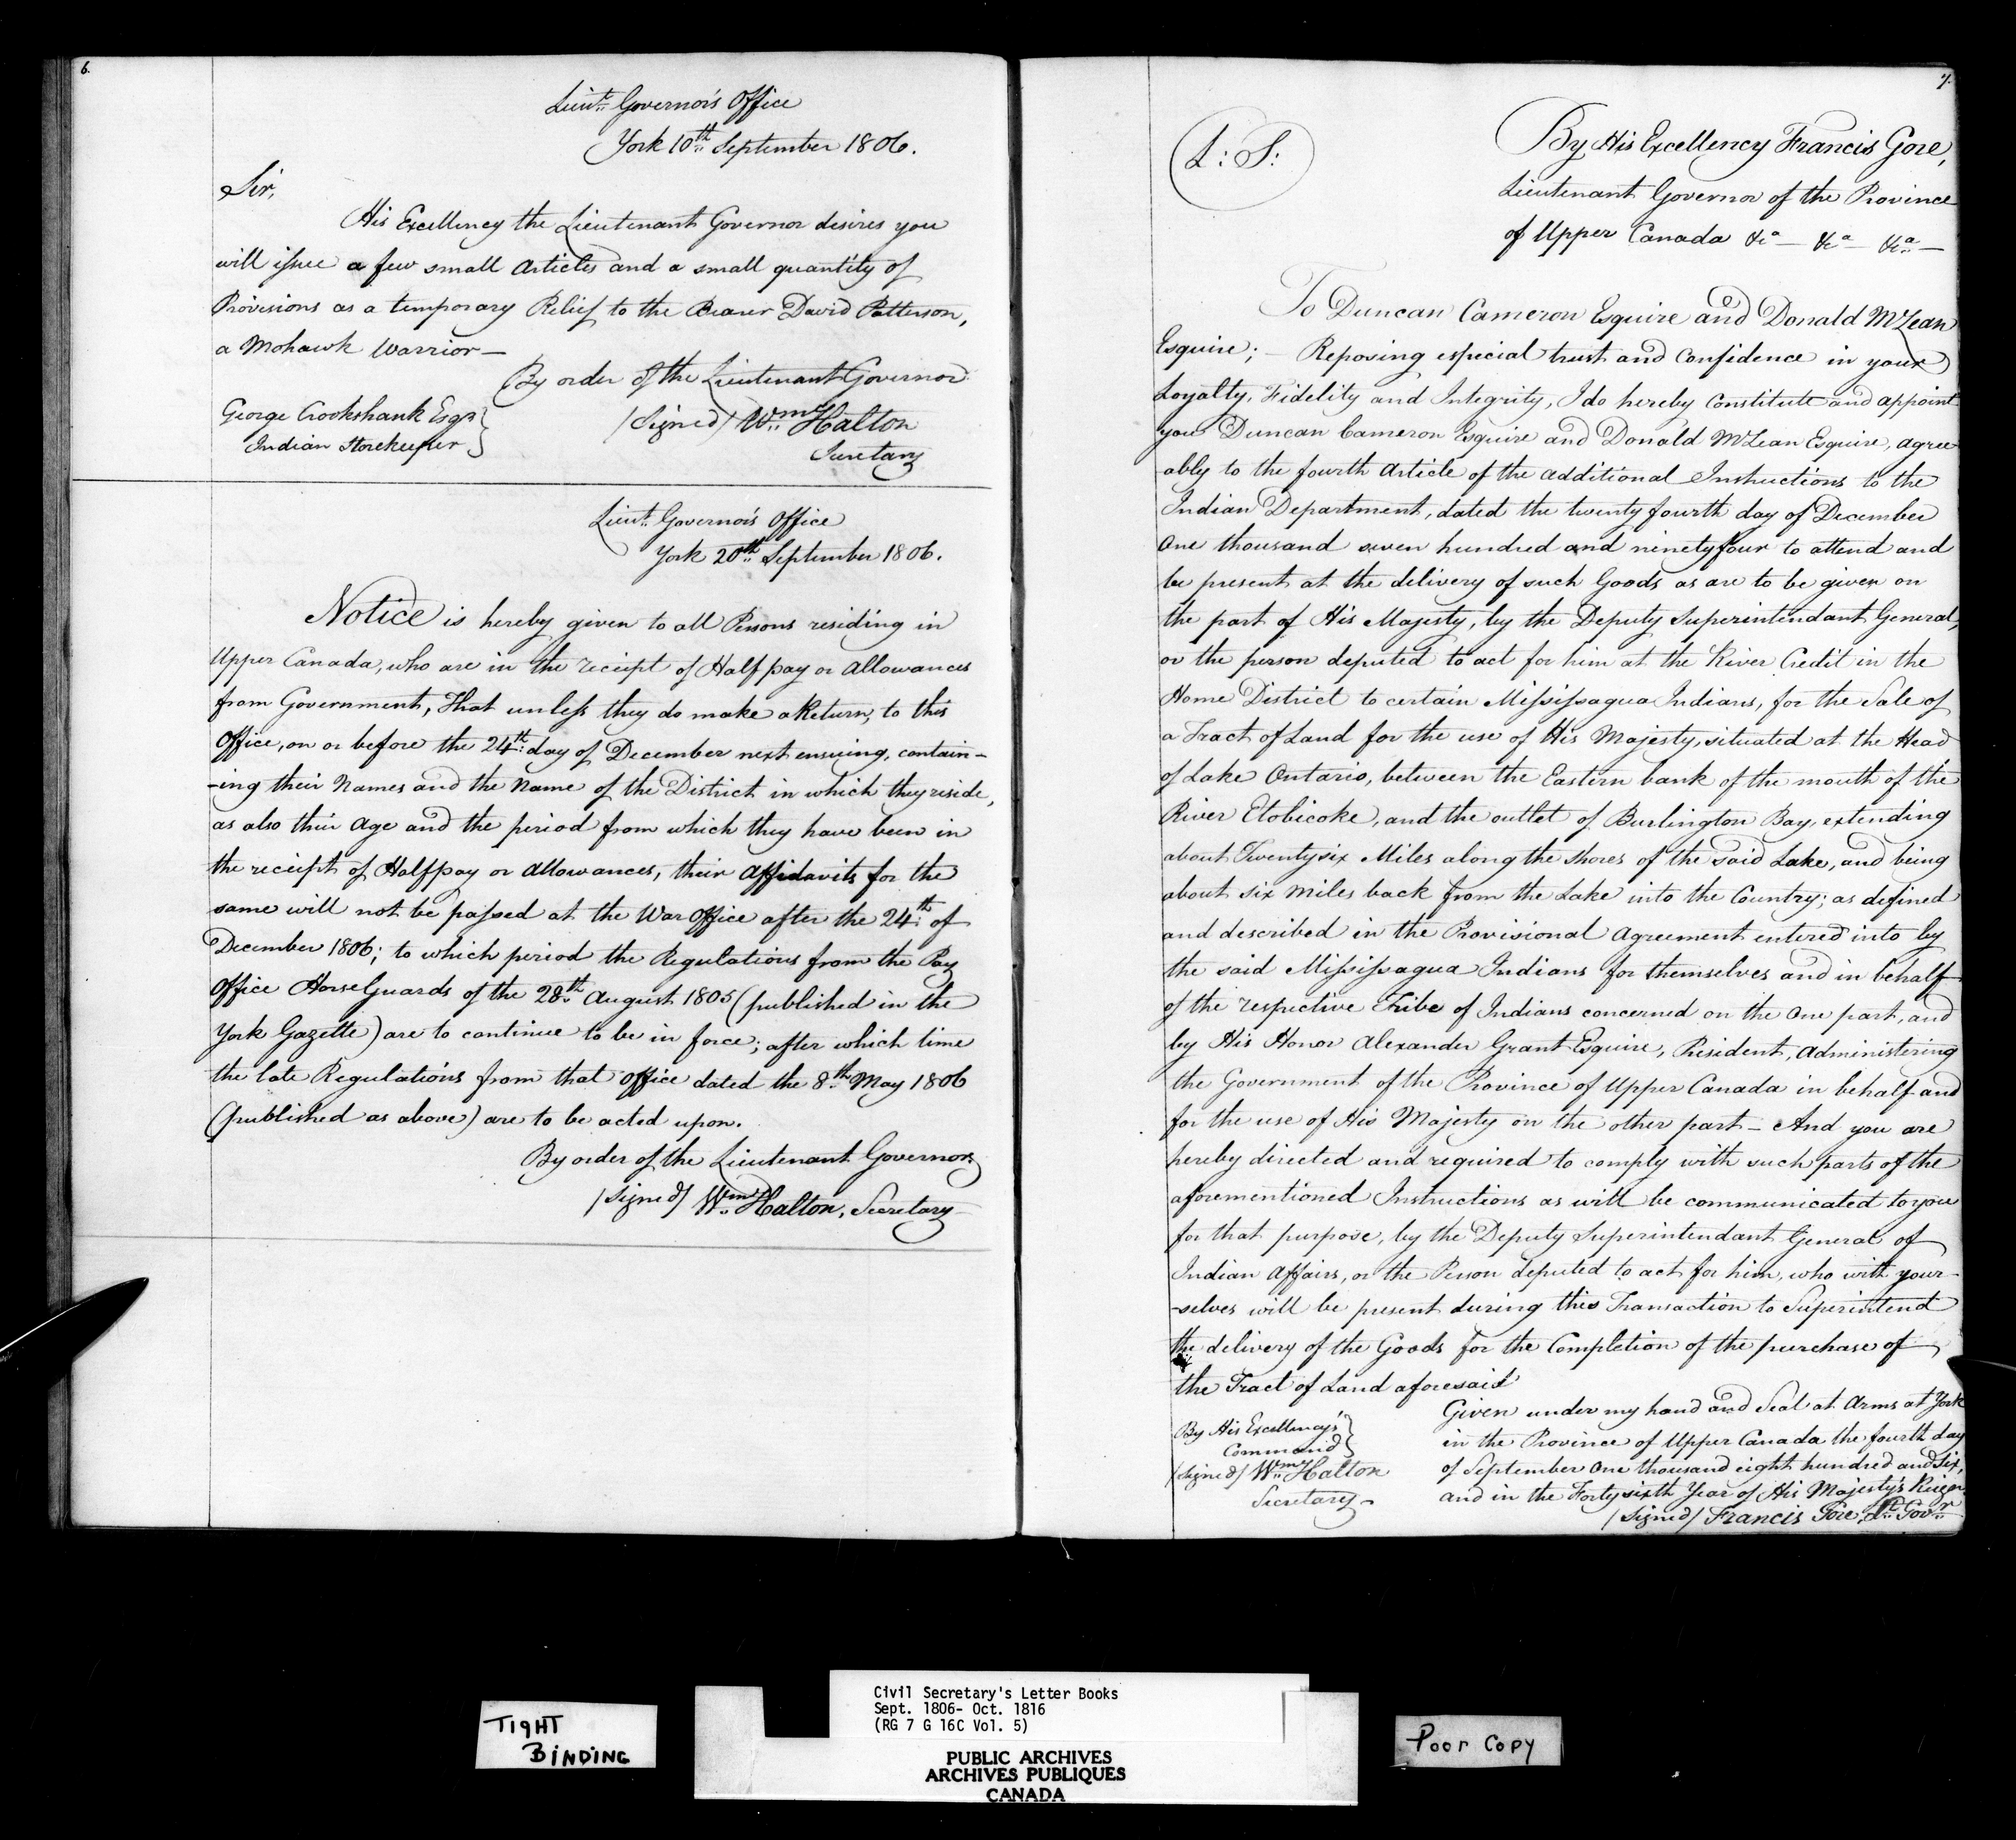 6.
Lieut. Governor's Office
York 10th September 1806.
Sir,
His Excellency the Lieutenant Governor desires you
will issue a few small Articles and a small quantity of
Provisions as a temporary Relief to the Bearer David Patterson,
a Mohawk Warrior—
By order of the Lieutenant Governor
George Crookshank Esqr.
Indian Storekeeper
/Signed/ Wm. Halton
Secretary
Lieut. Governor's Office
York 20th September 1806.
Notice is hereby given to all Persons residing in
Upper Canada, who are in the receipt of Half pay or Allowances
from Government, That unless they do make a Return, to this
Office, on or before the 24th day of December next ensuing, contain-
-ing their Names and the Name of the District in which they reside,
as also their Age and the period from which they have been in
the receipt of Halfpay or Allowances, their Affidavits for the
same will not be passed at the War Office after the 24th of
December 1806; to which period the Regulations from the Pay
Office Horse Guards of the 28th August 1805 (published in the
York Gazette) are to continue to be in force; after which time
the late Regulations from that Office dated the 8th May 1806
(published as above) are to be acted upon.
By order of the Lieutenant Governor
/Signed/ Wm. Halton, Secretary
7.
L: S:
By His Excellency Francis Gore,
Lieutenant Governor of the Province
of Upper Canada &ca— &ca— &ca—
To Duncan Cameron Esquire and Donald McLean
Esquire;— Reposing especial trust and confidence in your
Loyalty, Fidelity and Integrity, I do hereby Constitute and appoint
you Duncan Cameron Esquire and Donald McLean Esquire, agree
-ably to the fourth Article of the additional Instructions to the
Indian Department, dated the twenty fourth day of December
One thousand seven hundred and ninety four to attend and
be present at the delivery of such Goods as are to be given on
the part of His Majesty, by the Deputy Superintendant General,
or the person deputed to act for him at the River Credit in the
Home District to certain Missisagua Indians, for the Sale of
a Tract of Land for the use of His Majesty, situated at the Head
of Lake Ontario, between the Eastern bank of the mouth of the
River Etobicoke, and the outlet of Burlington Bay, extending
about Twenty six Miles along the shores of the said Lake, and being
about six miles back from the Lake into the Country; as defined
and described in the Provisional Agreement entered into by
the said Missisagua Indians for themselves and in behalf
of the respective Tribe of Indians concerned on the One part, and
by His Honor Alexander Grant Esquire, President, Administering
the Government of the Province of Upper Canada in behalf and
for the use of His Majesty on the other part— And you are
hereby directed and required to comply with such parts of the
aforementioned Instructions as will be communicated to you
for that purpose, by the Deputy Superintendant General of
Indian Affairs, or the Person deputed to act for him, who with your-
-selves will be present during this Transaction to Superintend
the delivery of the Goods for the Completion of the purchase of
the Tract of Land aforesaid
Given under my hand and Seal at Arms at York
in the Province of Upper Canada the fourth day
of September One thousand eight hundred and Six,
and in the Forty sixth Year of His Majesty's Reign.
/Signed/ Francis Gore, Lt. Govr.
By His Excellency's
Command
/Signed/ Wm. Halton
Secretary—
TIGHT
BINDING
Civil Secretary's Letter Books
Sept. 1806- Oct. 1816
(RG 7 G 16C Vol. 5)
PUBLIC ARCHIVES
ARCHIVES PUBLIQUES
CANADA
Poor Copy